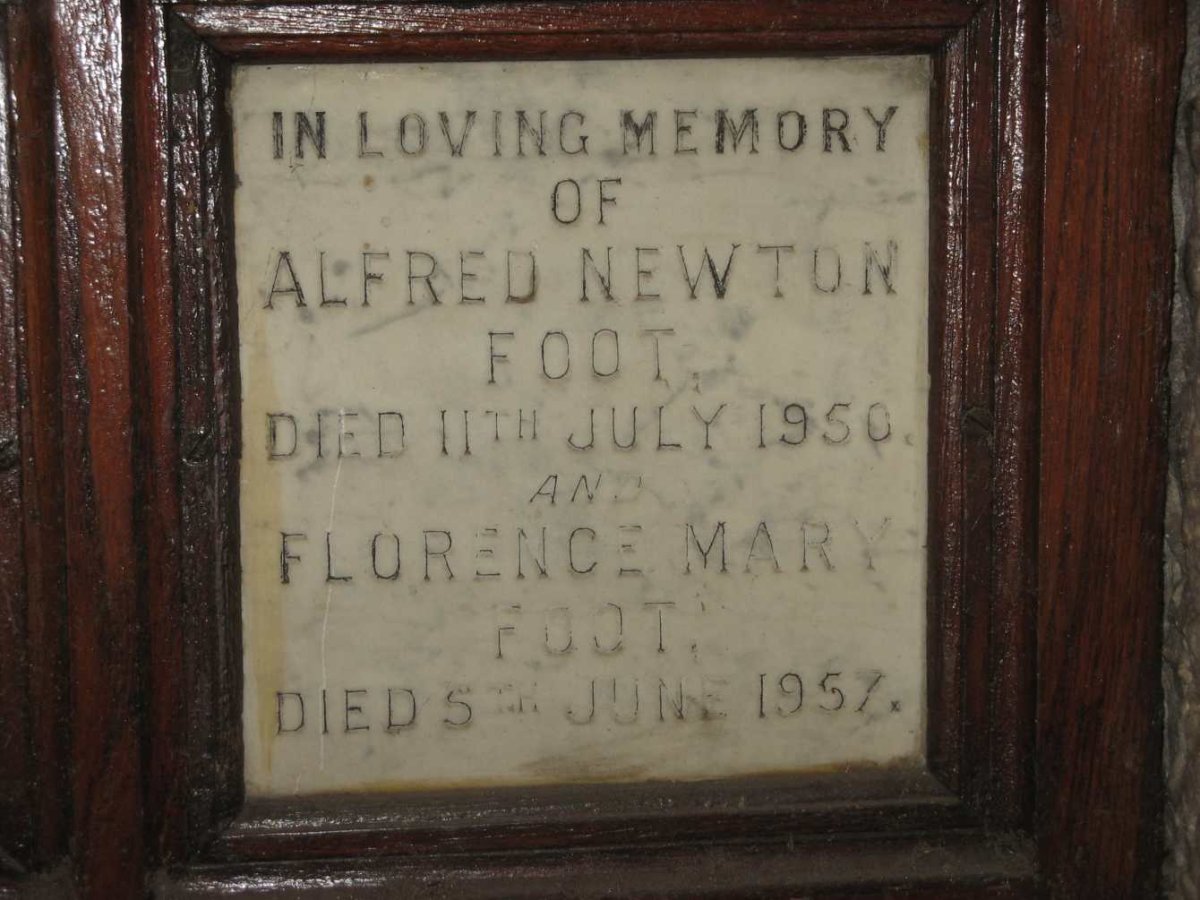 IN LOVING MEMORY
OF
ALFRED NEWTON
FOOT,
DIED 11TH JULY 1950.
AND
FLORENCE MARY
FOOT,
DIED 5TH JUNE 1957.